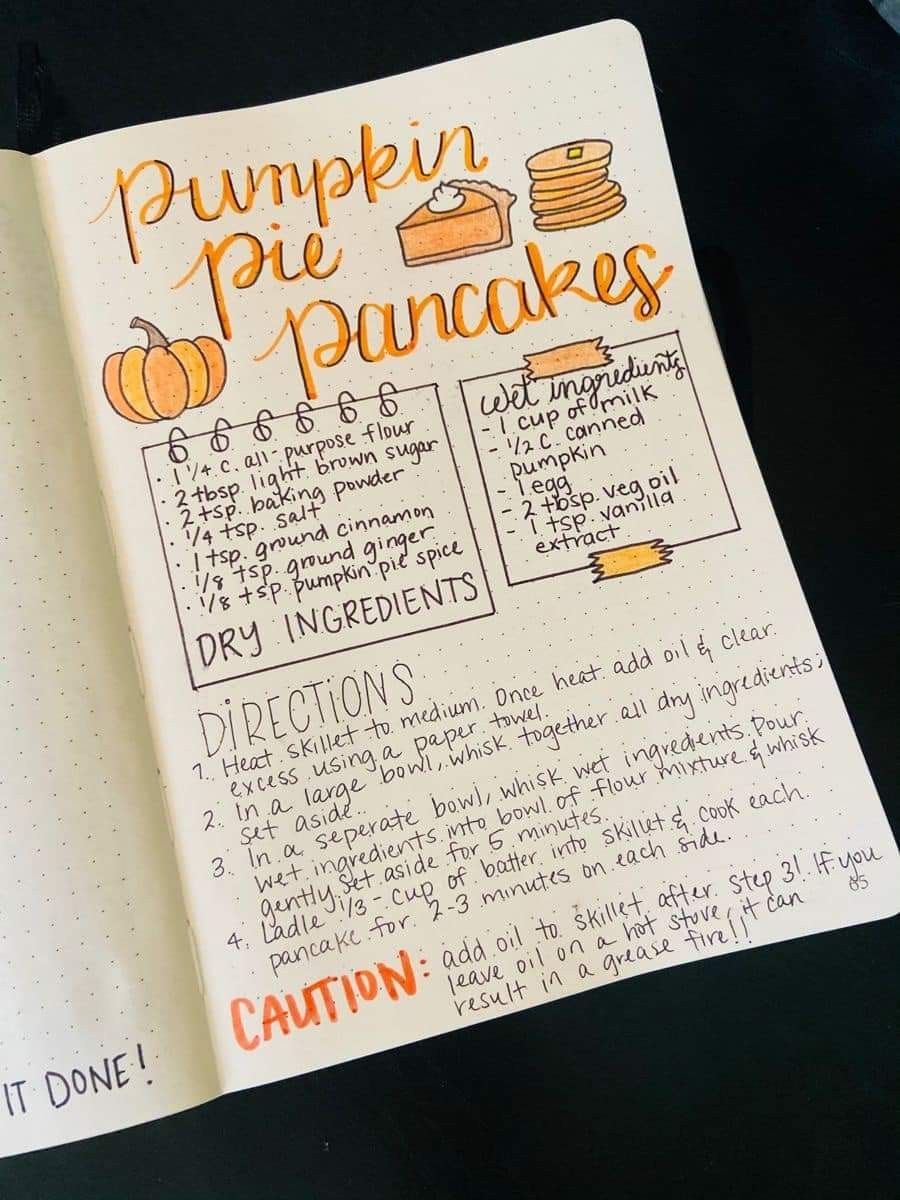 Pumpkin
Pie
Pancakes
· 1 1/4 c. all-purpose flour
· 2 tbsp. light brown sugar
· 2 tsp. baking powder
· 1/4 tsp. salt
· 1 tsp. ground cinnamon
· 1/8 tsp. ground ginger
· 1/8 tsp. pumpkin pie spice
DRY INGREDIENTS
Wet ingredients
- 1 cup of milk
- 1/2 c. canned
pumpkin
- 1 egg
- 2 tbsp. veg oil
- 1 tsp. vanilla
extract
DIRECTIONS
1. Heat skillet to medium. Once heat add oil & clear
excess using a paper towel.
2. In a large bowl, whisk together all dry ingredients;
set aside.
3. In a seperate bowl, whisk wet ingredients. Pour
wet ingredients into bowl of flour mixture & whisk
gently, set aside for 5 minutes.
4. Ladle 1/3-cup of batter into skillet & cook each
pancake for 2-3 minutes on each side.
CAUTION: add oil to skillet after step 3! If you
leave oil on a hot stove, it can
result in a grease fire!!
85
IT DONE!